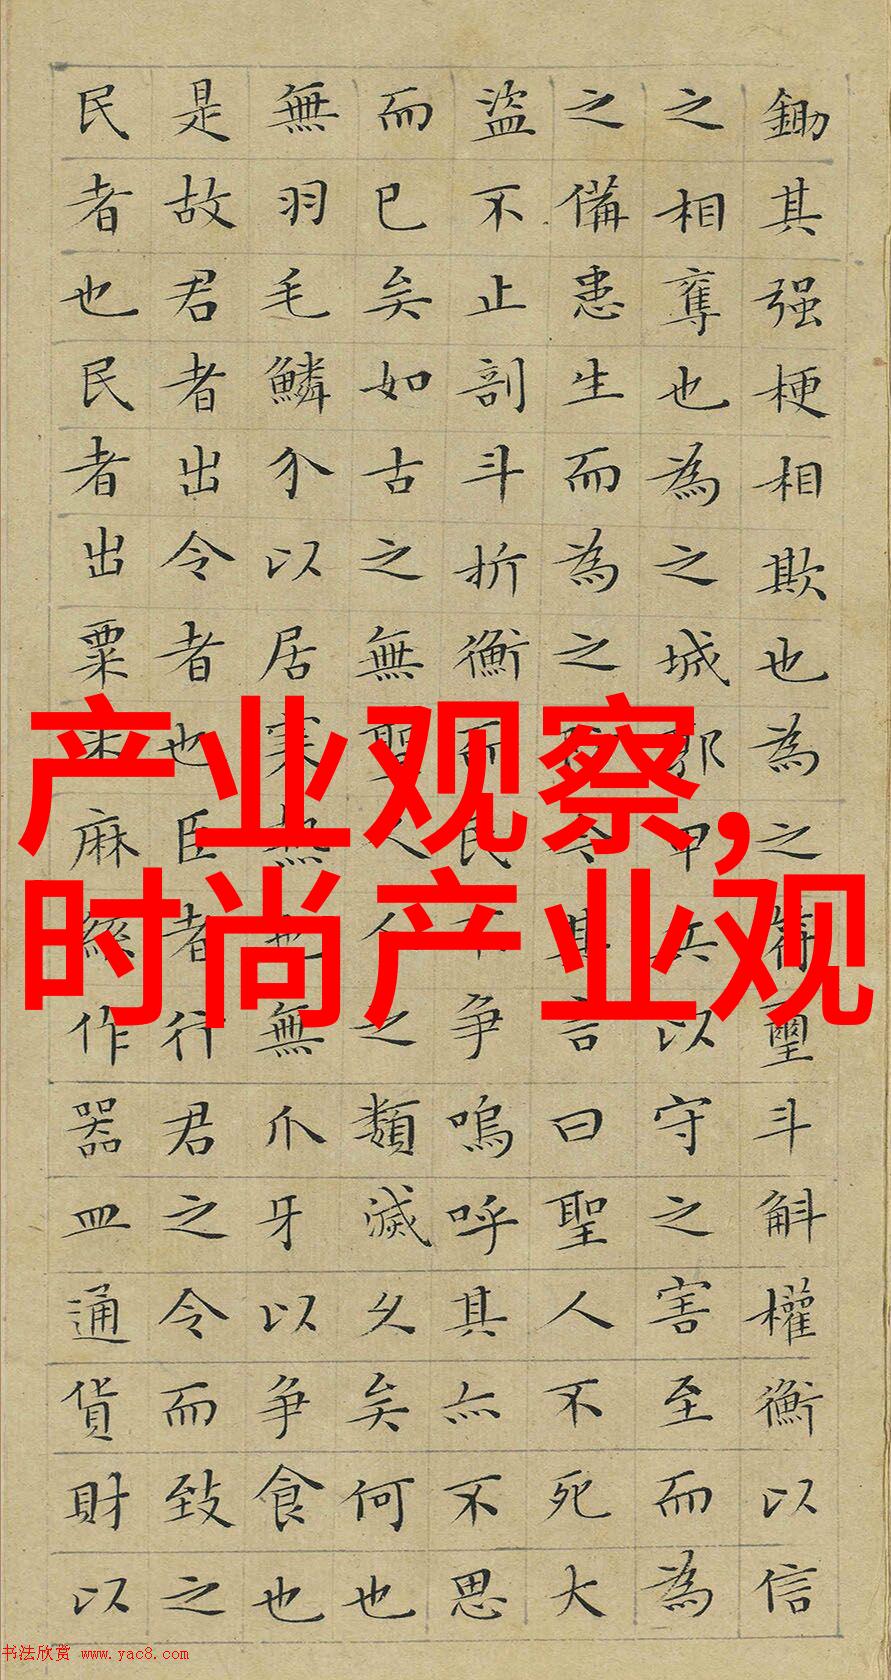 鋤其强梗相欺也為之符璽斗斛權衡以信
之相奪也為之城郭甲兵以守之害至而為
之備患生而為之防今其言曰聖人不死大
盜不止剖斗折衡而民不争嗚呼其亦不思
而已矣如古之無聖人人之類滅久矣何也
無羽毛鱗介以居寒熱也無爪牙以争食也
是故君者出令者也臣者行君之令而致之
民者也民者出粟米麻絲作器皿通貨財以
产业观察,
时尚产业观
书法欣赏 www.yac8.com